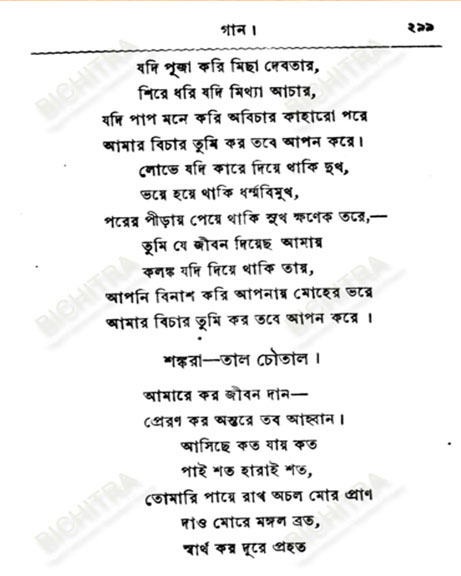 গান।
২৯৯
যদি পূজা করি মিছা দেবতার,
শিরে ধরি যদি মিথ্যা আচার,
যদি পাপ মনে করি অবিচার কাহারো পরে
আমার বিচার তুমি কর তবে আপন করে।
লোভে যদি কারে দিয়ে থাকি দুখ,
ভয়ে হয়ে থাকি ধর্ম্মবিমুখ,
পরের পীড়ায় পেয়ে থাকি সুখ ক্ষণেক তরে,—
তুমি যে জীবন দিয়েছ আমায়
কলঙ্ক যদি দিয়ে থাকি তায়,
আপনি বিনাশ করি আপনায় মোহের ভরে
আমার বিচার তুমি কর তবে আপন করে।
শঙ্করা—তাল চৌতাল।
আমারে কর জীবন দান—
প্রেরণ কর অন্তরে তব আহ্বান।
আসিছে কত যায় কত
পাই শত হারাই শত,
তোমারি পায়ে রাখ অচল মোর প্রাণ
দাও মোরে মঙ্গল ব্রত,
স্বার্থ কর দূরে প্রহত
BICHITRA
BICHITRA
BICHITRA
BICHITRA
BICHITRA
BICHITRA